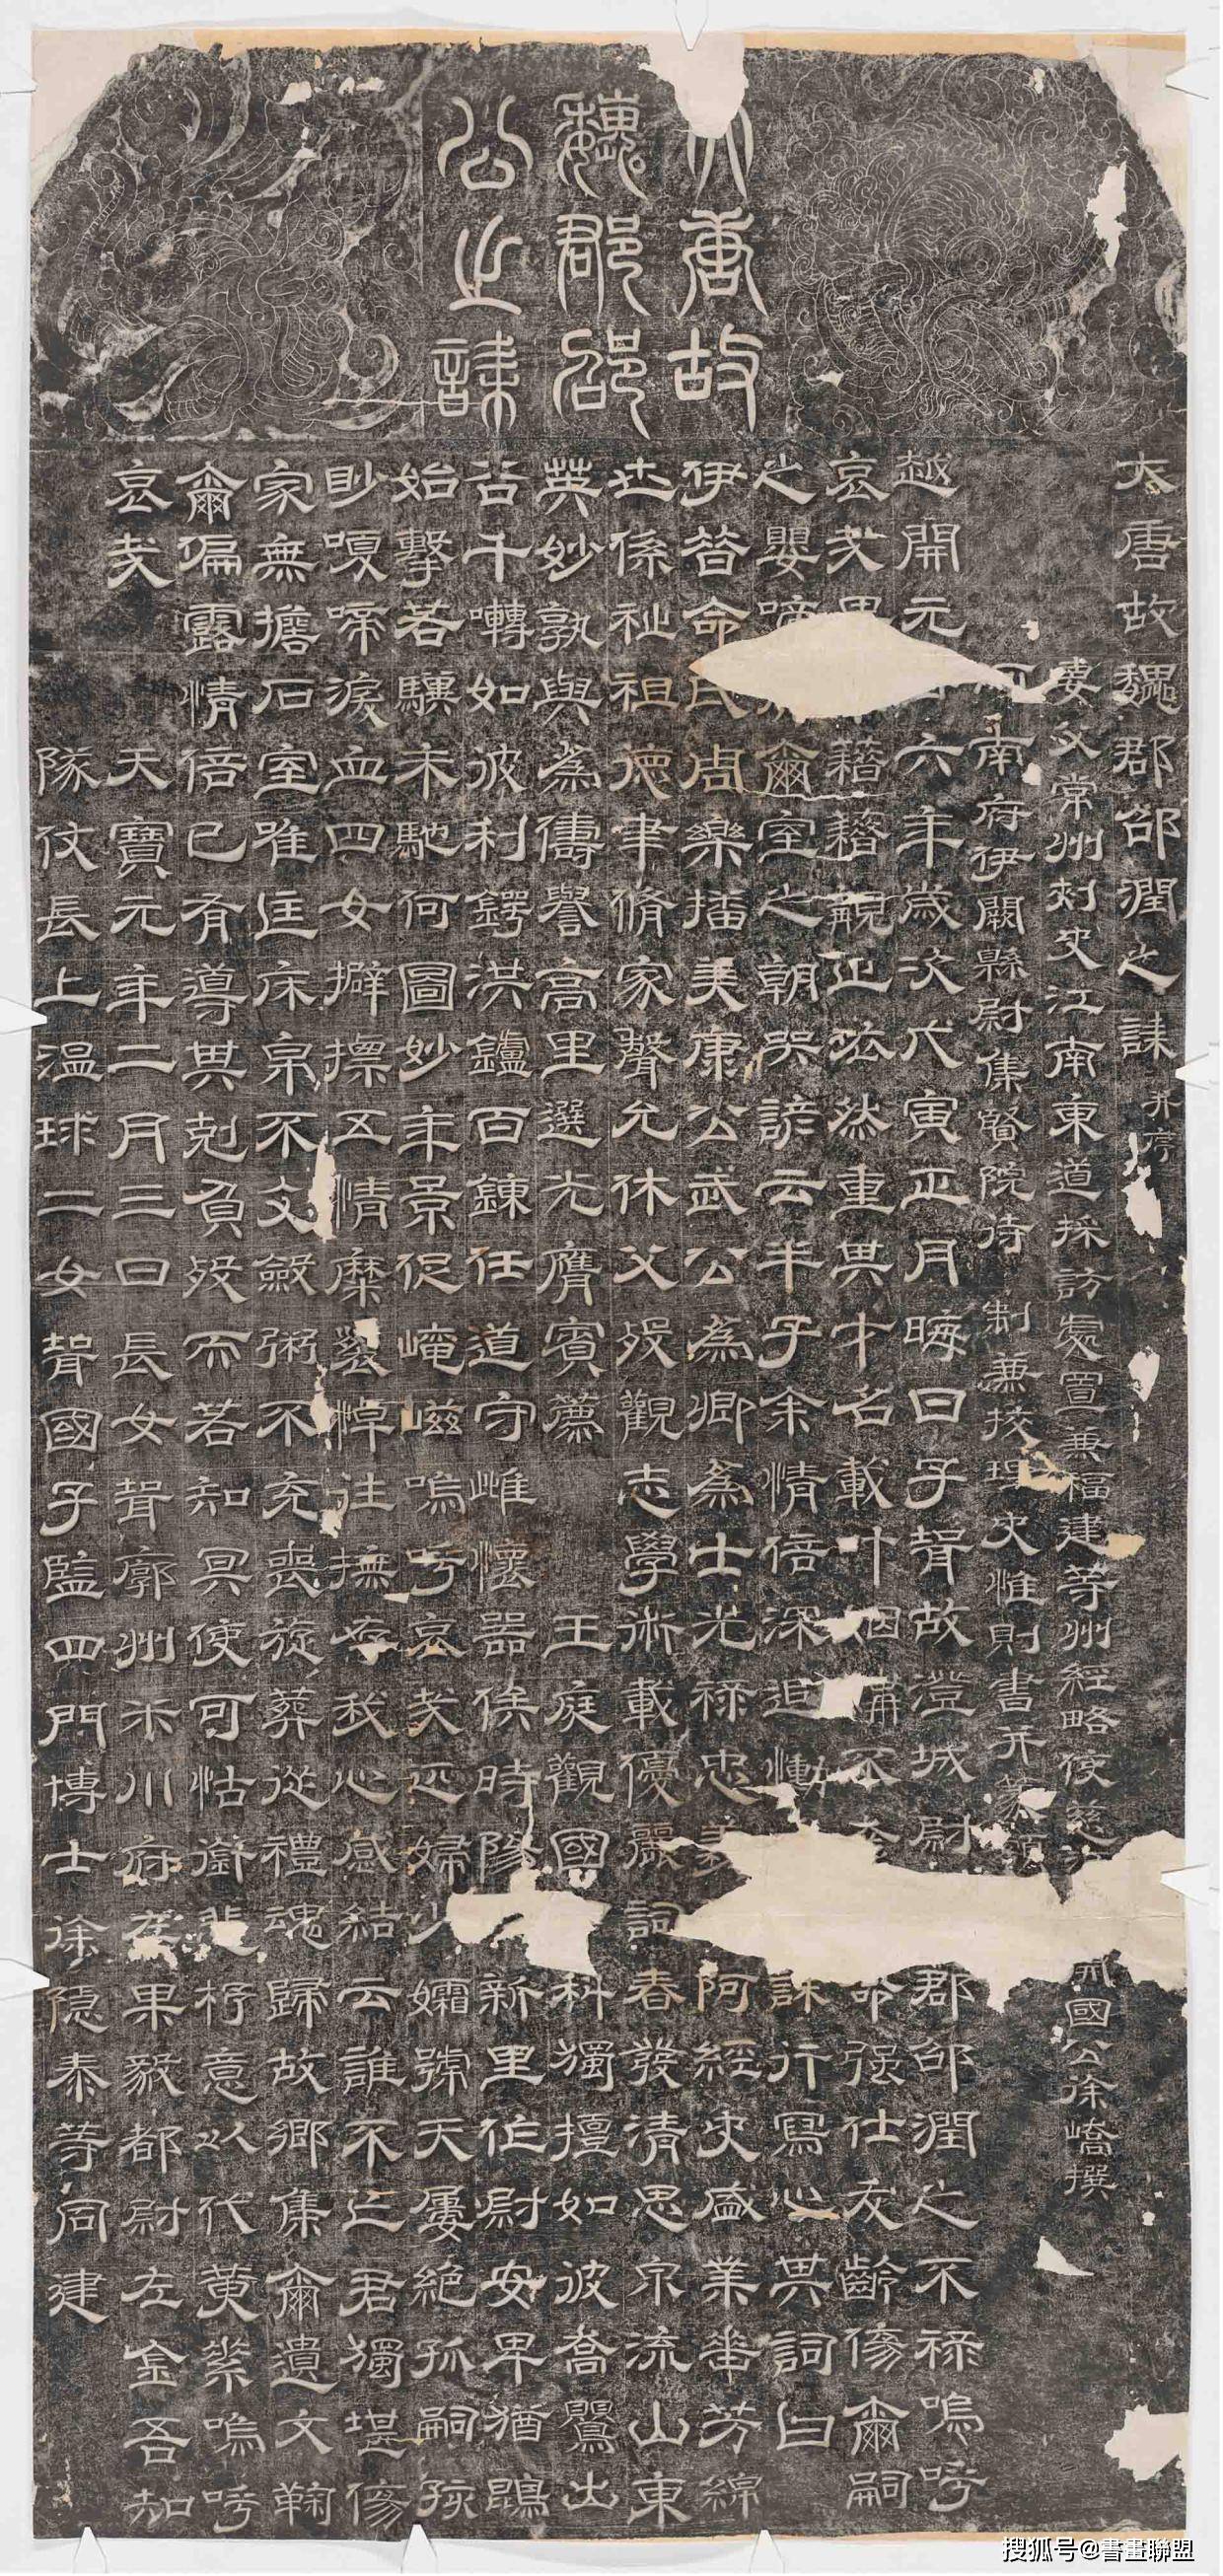 大唐故
魏郡邵
公之誄
大唐故魏郡邵潤之誄并序
妻父常州刾史江南東道採訪處置兼福建等州經略使慈 開國公徐嶠撰
河南府伊闕縣尉集賢院待制兼挍理史惟則書并篆額
越開元 六年歲次戊寅正月晦日子聟故澄城尉 郡邵潤之不祿嗚呼
哀哉 籍籍 重其才名載 不 命強仕友齡俢爾嗣
之嬰啼 爾室之朝哭諺云半子余情倍深追慟 誄行寫心其詞曰
伊昔命氏周樂播美康公武公為卿為士光祿忠 阿經史盛業番芳綿
世係祉祖德聿脩家聲允休父歿觀志學術載優麗詞春發清思泉流山東
英妙孰與為儔譽高里選光膺賓薦 王庭觀國 科獨擅如彼喬鸎出
谷千囀如彼利鍔洪鑪百鍊任道守雌懷器俟時階 新里作尉安卑猶鵾
始擊若驥未馳何圖妙年景促崦嵫嗚乎哀哉 婦少孀號天屢絕孤嗣孩
眇嗄啼淚血四女擗摽五情糜裂悼往撫存我心感結云誰不亡君獨堪傷
家無擔石室唯匡床帛不文斂粥不充喪旋葬從禮魂歸故鄉集爾遺文鞠
爾偏露情倍已有導其剋負歿而若知冥使可怙銜悲抒意以代黃絫嗚呼
哀哉
天寶元年二月三日長女聟廓州米川府左果毅都尉左金吾
隊仗長上溫球二女聟國子監四門博士徐隱泰等同建
搜狐号@書畫聯盟